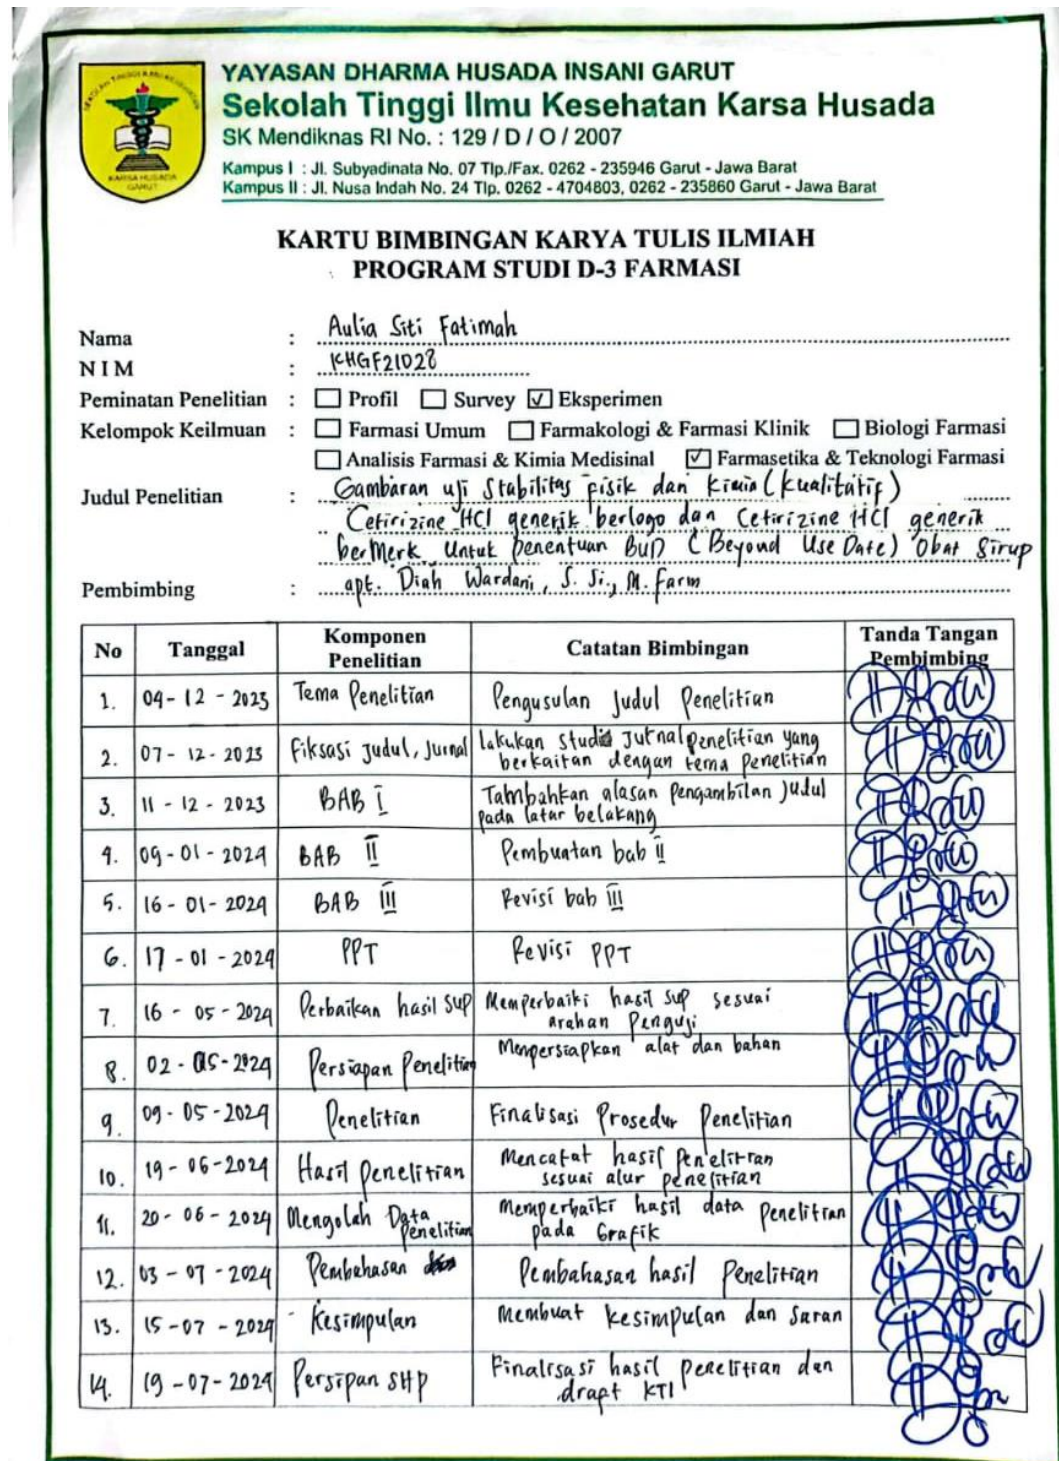 YAYASAN DHARMA HUSADA INSANI GARUT
Sekolah Tinggi Ilmu Kesehatan Karsa Husada
SK Mendiknas RI No. : 129 / D / O / 2007
Kampus I : Jl. Subyadinata No. 07 Tlp./Fax. 0262 - 235946 Garut - Jawa Barat
Kampus II : Jl. Nusa Indah No. 24 Tlp. 0262 - 4704803, 0262 - 235860 Garut - Jawa Barat
KARSA HUSADA
GARUT
KARTU BIMBINGAN KARYA TULIS ILMIAH
PROGRAM STUDI D-3 FARMASI
Nama : Aulia Siti Fatimah
NIM : KHGF21028
Peminatan Penelitian : ☐ Profil ☐ Survey ☑ Eksperimen
Kelompok Keilmuan : ☐ Farmasi Umum ☐ Farmakologi & Farmasi Klinik ☐ Biologi Farmasi
☐ Analisis Farmasi & Kimia Medisinal ☑ Farmasetika & Teknologi Farmasi
Judul Penelitian : Gambaran uji Stabilitas fisik dan kimia (kualitatif)
Cetirizine HCl generik berlogo dan Cetirizine HCl generik
berMerk Untuk penentuan BUD (Beyond Use Date) Obat Sirup
Pembimbing : apt. Diah Wardani, S. Si., M. Farm
No Tanggal Komponen Penelitian Catatan Bimbingan Tanda Tangan Pembimbing
1. 04 - 12 - 2023 Tema Penelitian Pengusulan Judul Penelitian
2. 07 - 12 - 2023 Fiksasi judul, Jurnal lakukan studi Jurnal penelitian yang
berkaitan dengan tema penelitian
3. 11 - 12 - 2023 BAB I Tambahkan alasan Pengambilan Judul
pada latar belakang
4. 09 - 01 - 2024 BAB II Pembuatan bab II
5. 16 - 01 - 2024 BAB III Revisi bab III
6. 17 - 01 - 2024 PPT Revisi PPT
7. 16 - 05 - 2024 Perbaikan hasil SUP Memperbaiki hasil SUP sesuai
arahan Penguji
8. 02 - 05 - 2024 Persiapan Penelitian Mempersiapkan alat dan bahan
9. 09 - 05 - 2024 Penelitian Finalisasi Prosedur Penelitian
10. 19 - 06 - 2024 Hasil Penelitian Mencatat hasil Penelitian
sesuai alur penelitian
11. 20 - 06 - 2024 Mengolah Data Penelitian Memperbaiki hasil data Penelitian
pada Grafik
12. 03 - 07 - 2024 Pembahasan Pembahasan hasil Penelitian
13. 15 - 07 - 2024 Kesimpulan Membuat kesimpulan dan Saran
14. 19 - 07 - 2024 Persipan SHP Finalisasi hasil penelitian dan
drapt KTI